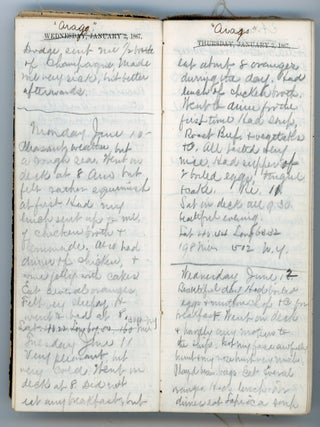 "Arago"
WEDNESDAY, JANUARY 2, 1867.
sent me 1/2 bottle
of Champagne Made
me very sick, but better
afterwards.
Monday June 10
Pleasant weather but
a rough sea. Went on
deck at 8 Am but
felt rather squeamish
at first Had my
lunch sent up to me
of chicken broth &
lemonade. Also had
dinner of chicken, &
wine jelly with cakes
Eat several oranges
Felt very sleepy &
went to bed at 8
Tuesday June 11
Very pleasant but
very cold. Went on
deck at 8 Did not
eat any breakfast, but
"Arago"
THURSDAY, JANUARY 3, 1867.
eat about 8 oranges
during the day. Had
lunch of chicken broth.
Went to dinner for the
first time Had soup,
Roast Beef & vegetables
&c. All tasted very
nice Had supper of
2 boiled eggs, tongue
& cake.
Sat on deck all 9.30
beautiful evening.
Lat 40.44 Long 60.32
198 Miles 502 N.Y.
Wednesday June 12
Beautiful day Had boiled
eggs & mutton chop &c for
breakfast Went on deck
& hardly any motion to
the ship, but my face awful
burnt my nose
Eat several
oranges Had lunch. For
dinner eat Tapioca soup